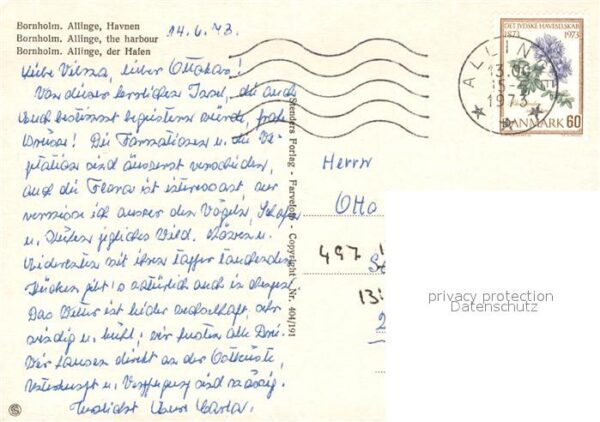 Bornholm. Allinge, Havnen
Bornholm. Allinge, the harbour
Bornholm. Allinge, der Hafen
14.6.73.
Liebe Vilma, lieber Ottokar!
Von dieser herrlichen Insel, die auch
Euch bestimmt begeistern würde, frohe
Grüsse! Die Formationen u. die Ve-
getation sind äusserst verschieden,
auch die Flora ist interessant, nur
vermisse ich ausser den Vögeln, Schafen
u. Kühen jegliches Wild. Möwen u.
mit ihren tauchenden
Kücken gibt's natürlich auch in
Das Wetter ist leider, sehr
windig u. kühl; wir husten alle Drei.
Wir hausen direkt an der Ostküste,
Unterkunft u. Verpflegung sind mässig.
Herzlichst Eure
Stenders Forlag - Farvefoto - Copyright Nr. 404/191
Herrn
Otto
497
13
2
DET JYDSKE HAVESELSKAB
1873 1973
DANMARK 60
ALLINGE
13.00
15-
1973
privacy protection
Datenschutz
S